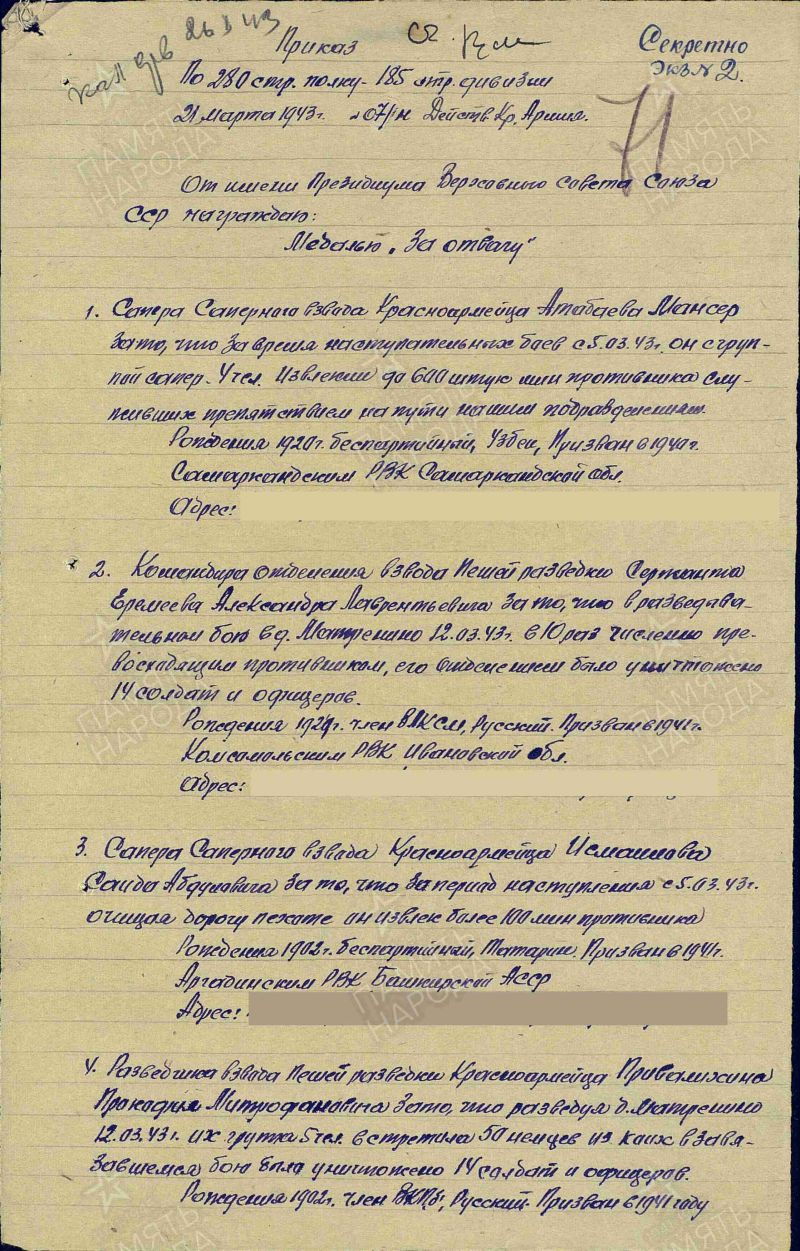 26 X 43
Приказ
Секретно
Экз № 2.
По 280 стр. полку - 185 стр. дивизии
21 марта 1943г. № 07/н Действ. Кр. Армия.
От имени Президиума Верховного совета Союза
ССР награждаю:
Медалью „За отвагу"
1. Сапера Саперного взвода Красноармейца Атабаева Мансер
За то, что За время наступательных боев с 5.03.43г. он с груп-
пой сапер. 4 чел. Извлекли до 600 штук мин противника слу-
живших препятствием на пути нашим подразделениям.
Рождения 1920г. беспартийный, Узбек, Призван в 1940г.
Самаркандским РВК Самаркандской обл.
Адрес:
2. Командира отделения взвода Пешей разведки Сержанта
Еремеева Александра Лаврентьевича За то, что в разведыва-
тельном бою в д. Матренино 12.03.43г. в 10 раз численно пре-
восходящим противником, его отделением было уничтожено
14 солдат и офицеров.
Рождения 192 г. член ВЛКСМ, Русский. Призван в 1941г.
Комсомольским РВК Ивановской обл.
Адрес:
3. Сапера Саперного взвода Красноармейца Исмаилова
Саида Абдулавича За то, что За период наступления с 5.03.43г.
очищая дорогу пехоте он извлек более 100 мин противника
Рождения 1902г. беспартийный, Татарин. Призван в 1941г.
РВК Башкирской АССР
Адрес:
4. Разведчика взвода Пешей разведки Красноармейца Привалихина
Прокофия Митрофановича За то, что разведуя д. Матренино
12.03.43г. их группа 5 чел. встретила 50 немцев из каих в завя-
завшемся бою было уничтожено 14 солдат и офицеров.
Рождения 1902г. член ВКПб, Русский. Призван в 1941 году
ПАМЯТЬ НАРОДА